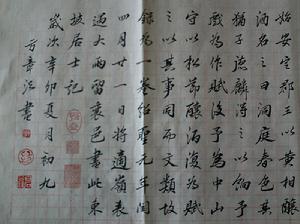 始安定郡王以黄柑釀
酒名之曰洞庭春色其
猶子德麟得之以餉予
戲為作賦後予為中山
守以松節釀酒復為賦
之以其事同而文類故
録為一卷紹聖元年閏
四月廿一日將適嶺表
遇大雨留襄邑書此東
坡居士記
歲次辛卯夏月初九
方章法書